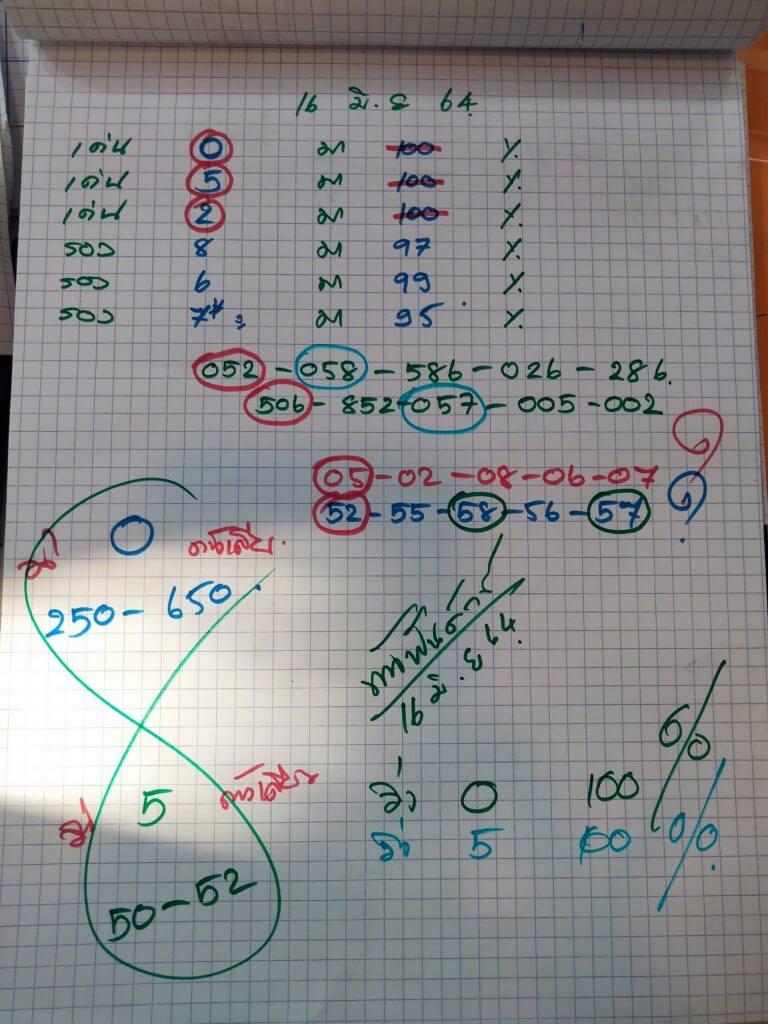 16 มิ.ย 64
เด่น 0 มา 100 %
เด่น 5 มา 100 %
เด่น 2 มา 100 %
รอง 8 มา 97 %
รอง 6 มา 99 %
รอง 7* มา 95 %
052 - 058 - 586 - 026 - 286.
506 - 852 - 057 - 005 - 002
05 - 02 - 08 - 06 - 07
52 - 55 - 58 - 56 - 57
0
250 - 650
16 มิ.ย 64
5
50 - 52
วิ่ง 0 100 %
วิ่ง 5 100 %